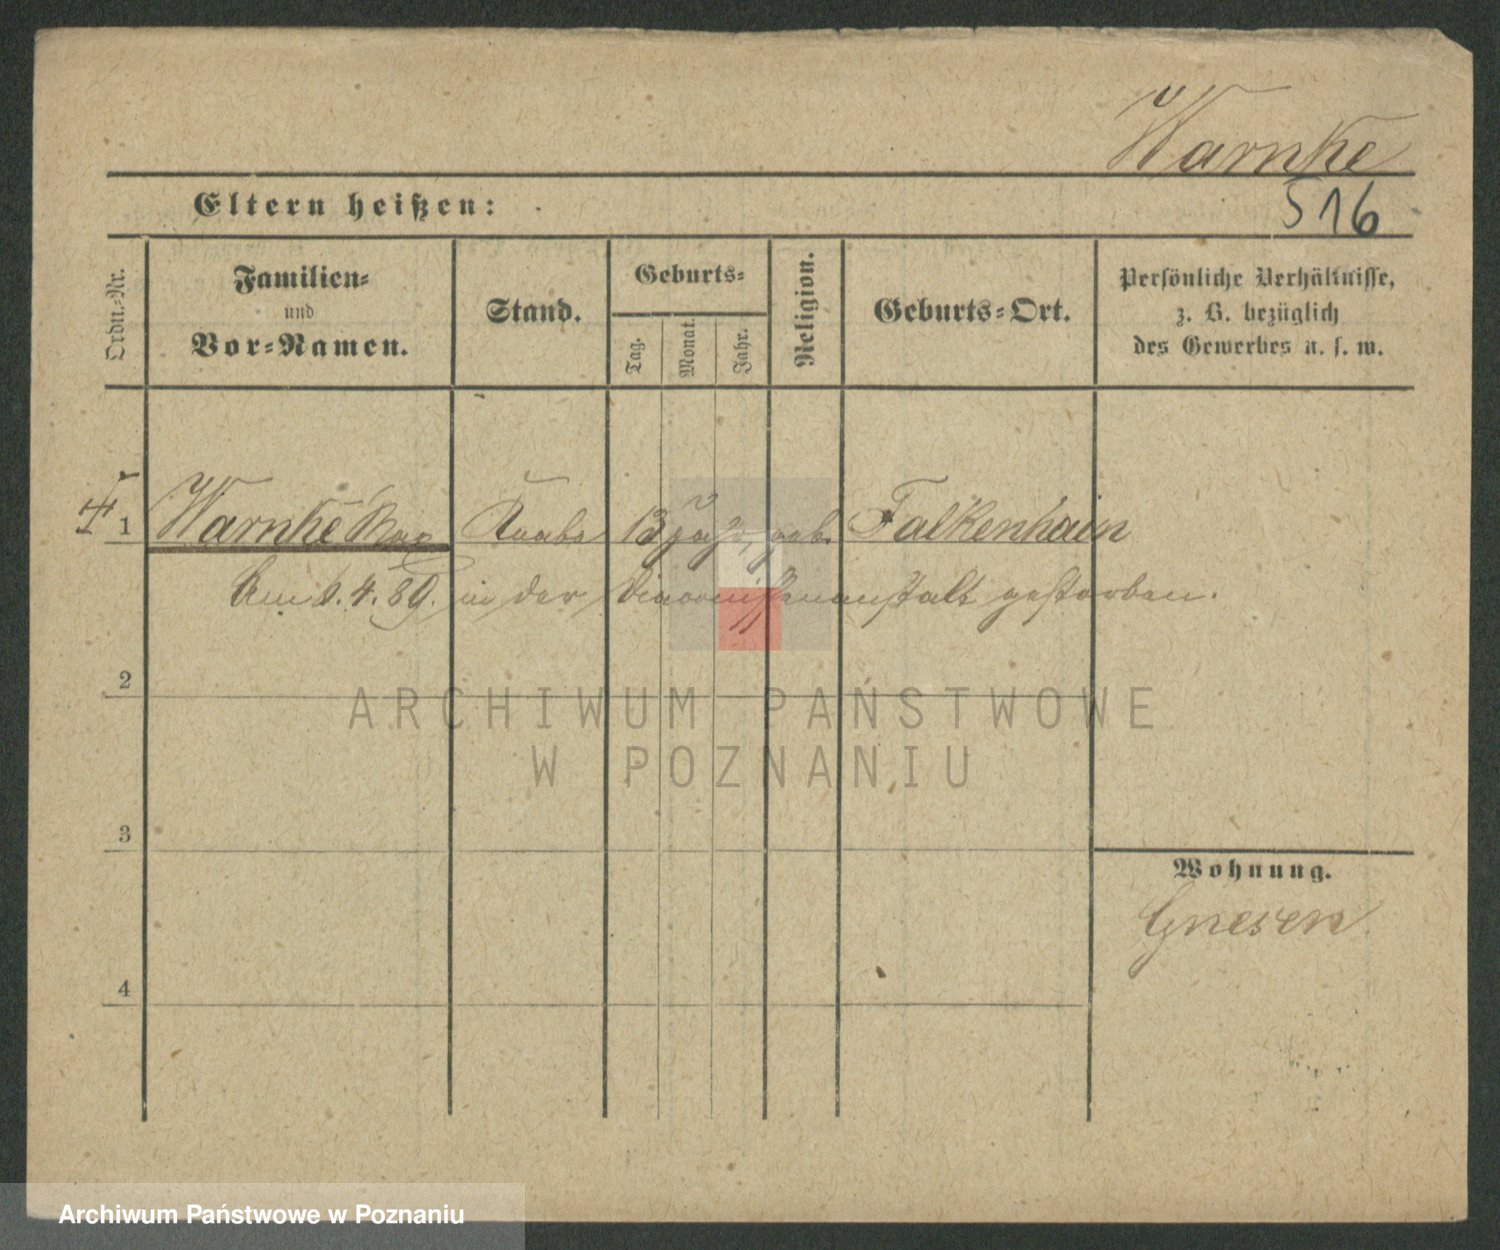 Warnke
Eltern heißen:
516
Ordn.-Nr.
Familien-
und
Vor-Namen.
Stand.
Geburts-
Tag.
Monat.
Jahr.
Religion.
Geburts-Ort.
Persönliche Verhältnisse,
z. B. bezüglich
des Gewerbes u. s. w.
1 Warnke Max Knabe 13 Jahr, geb. Falkenhain
Am 9.4.89. in der Diaconissenanstalt gestorben.
2
ARCHIWUM PAŃSTWOWE
W POZNANIU
3
Wohnung.
Gnesen
4
Archiwum Państwowe w Poznaniu